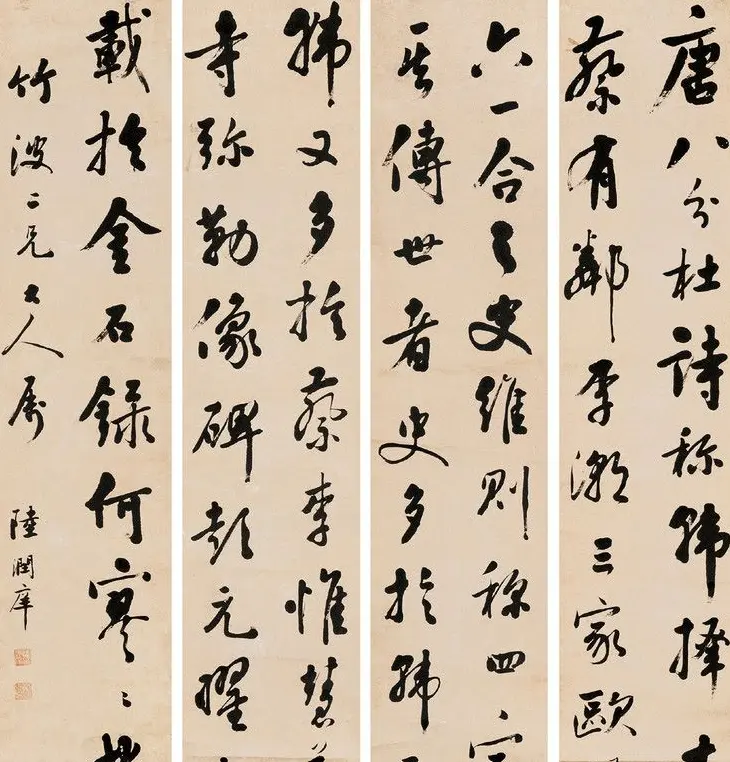 唐八分杜詩称韓擇
蔡有鄰李潮三家歐
六一合之史維則称四家
其傳世者史多於韓
韓又多於蔡李惟慧
寺弥勒像碑彭元曜
載於金石録何寥〻
竹波二兄大人属
陸潤庠